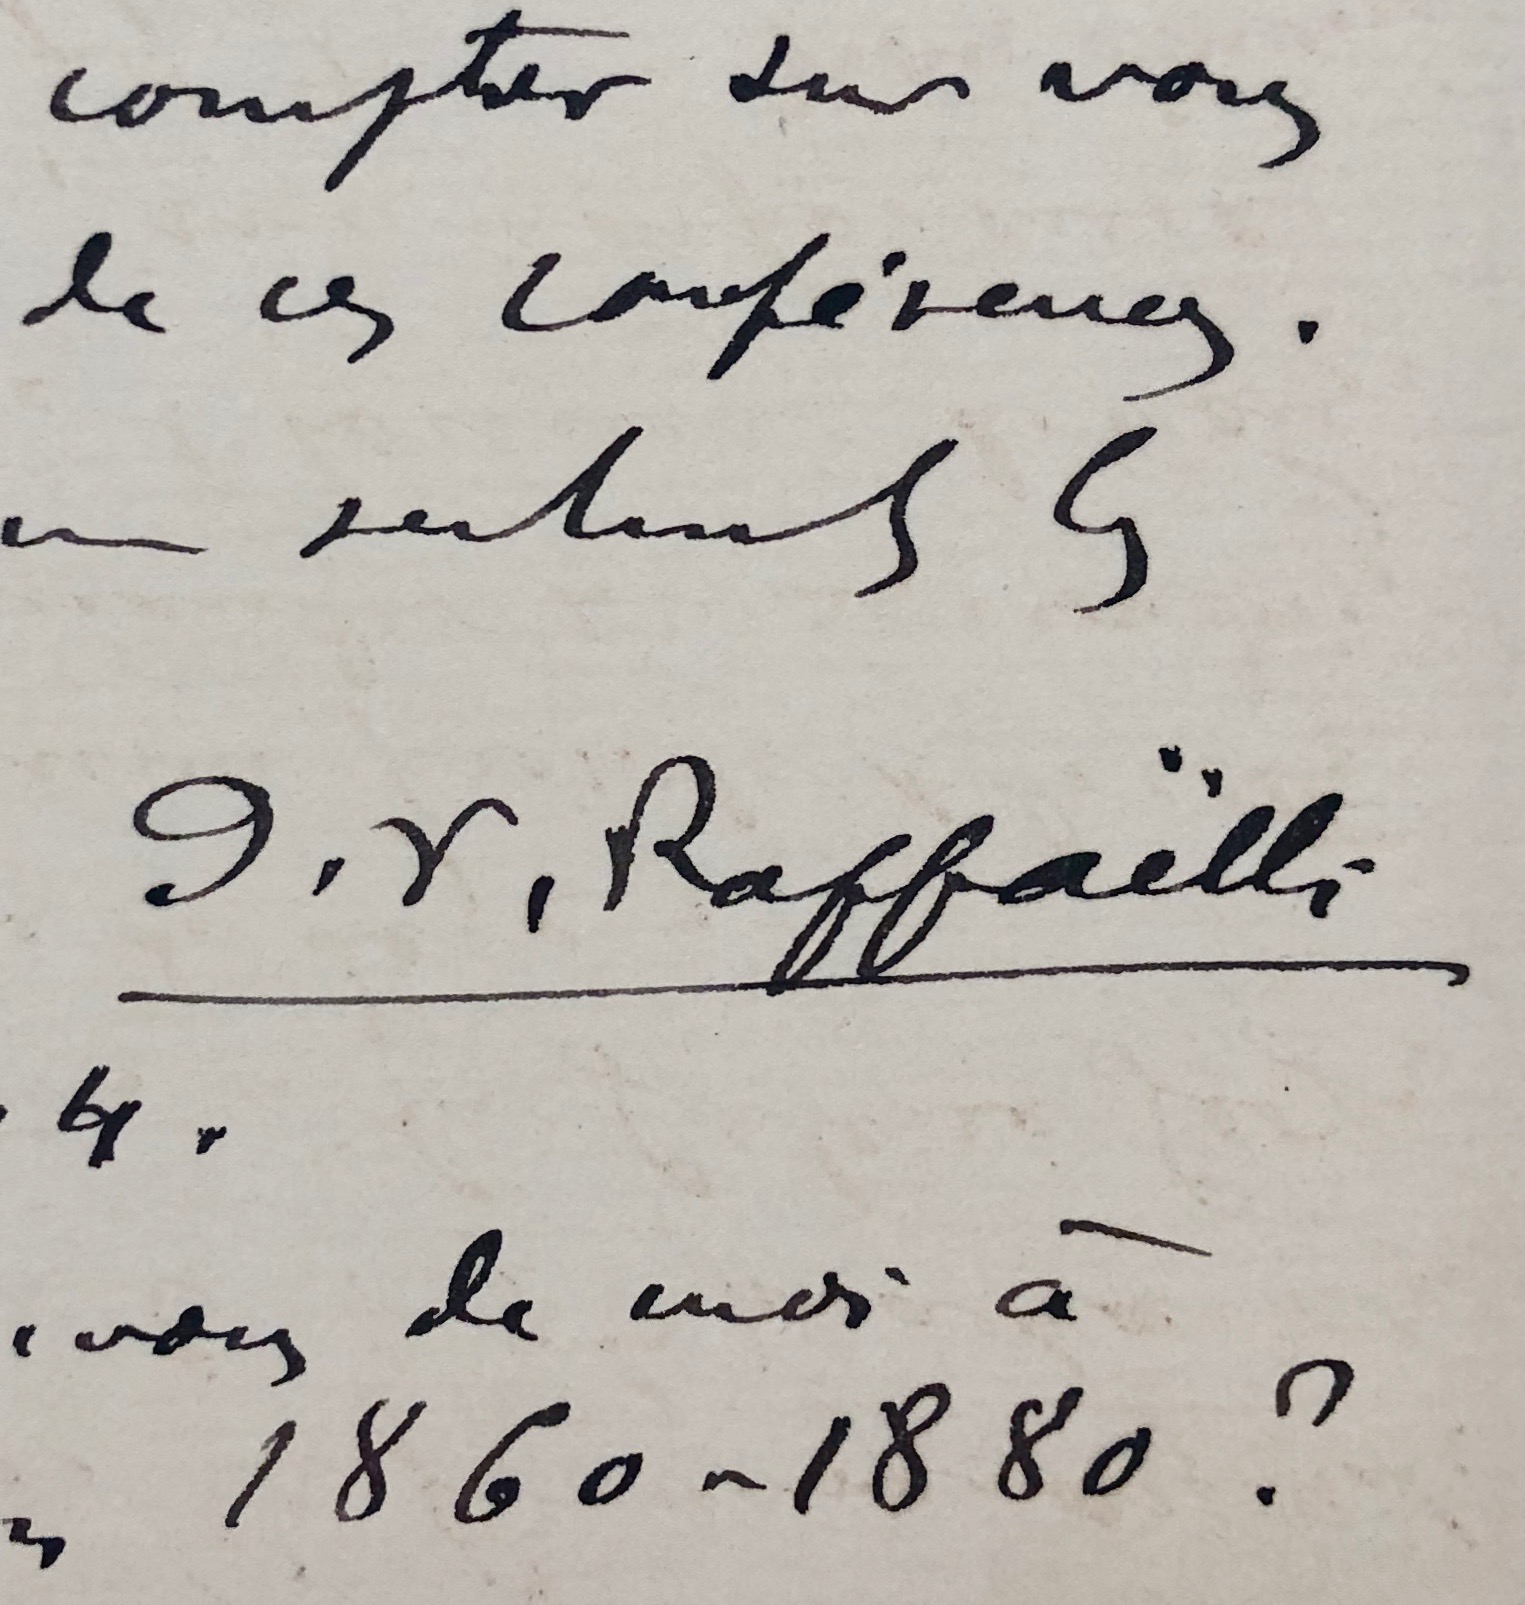 compter sur vous
de ces conférences.
sentiments les
J. F. Raffaëlli
4.
vous de moi à
1860-1880 ?